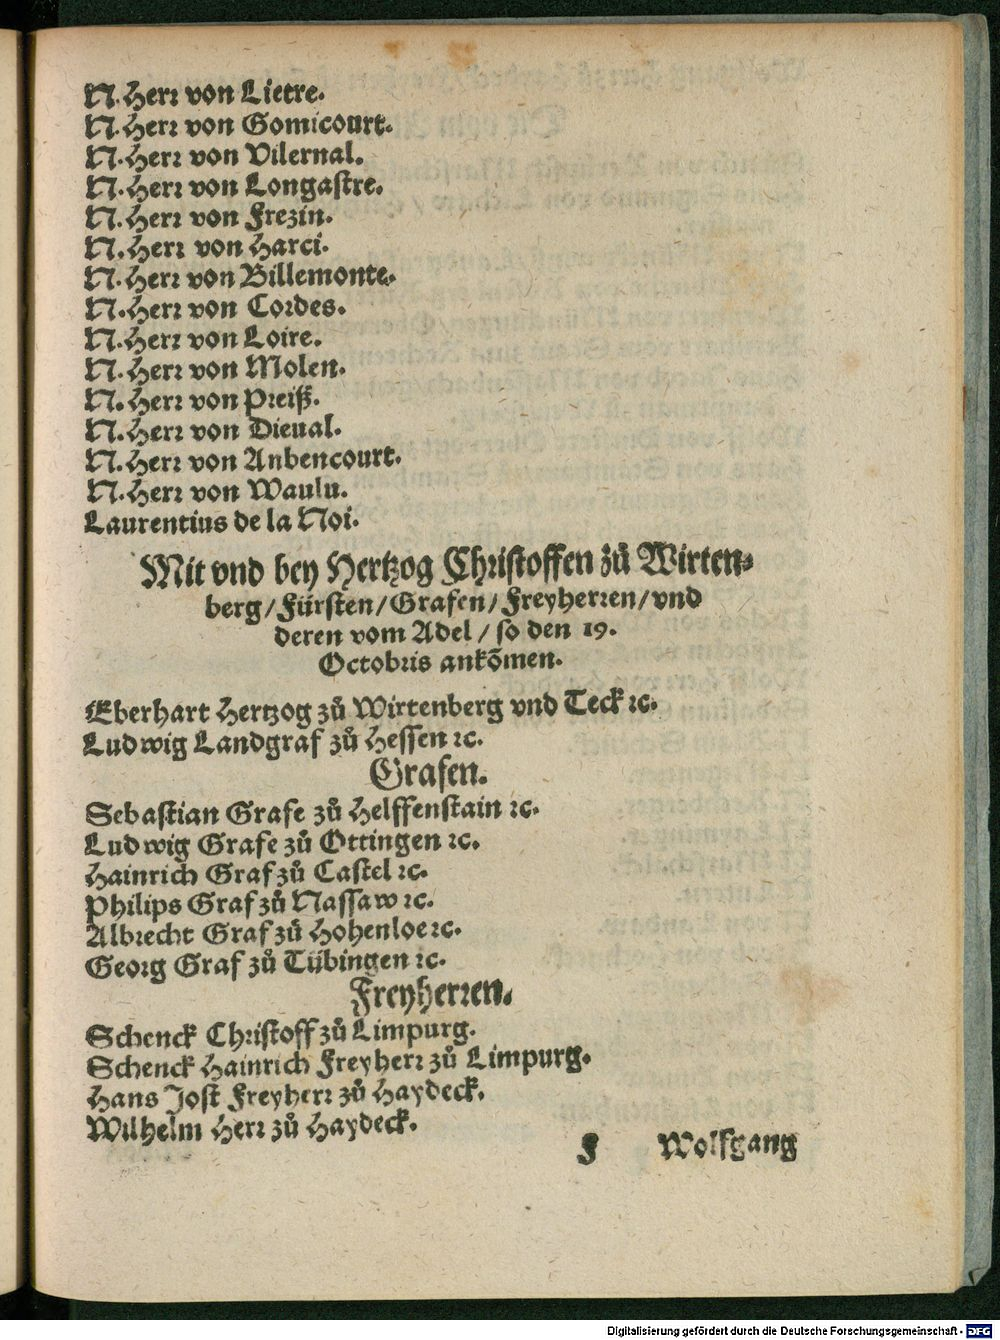 N. Herr von Lietre.
N. Herr von Gomicourt.
N. Herr von Vilernal.
N. Herr von Longastre.
N. Herr von Frezin.
N. Herr von Harci.
N. Herr von Billemonte.
N. Herr von Cordes.
N. Herr von Loire.
N. Herr von Molen.
N. Herr von Preiß.
N. Herr von Dieual.
N. Herr von Anbencourt.
N. Herr von Waulu.
Laurentius de la Noi.
Mit vnd bey Hertzog Christoffen zů Wirten-
berg / Fürsten / Grafen / Freyherren / vnd
deren vom Adel / so den 19.
Octobris ankõmen.
Eberhart Hertzog zů Wirtenberg vnd Teck ꝛc.
Ludwig Landgraf zů Hessen ꝛc.
Grafen.
Sebastian Grafe zů Helffenstain ꝛc.
Ludwig Grafe zů Ottingen ꝛc.
Hainrich Graf zů Castel ꝛc.
Philips Graf zů Nassaw ꝛc.
Albrecht Graf zů Hohenloe ꝛc.
Georg Graf zů Tübingen ꝛc.
Freyherren.
Schenck Christoff zů Limpurg.
Schenck Hainrich Freyherr zů Limpurg.
Hans Jost Freyherr zů Haydeck.
Wilhelm Herr zů Haydeck.
F Wolfgang
Digitalisierung gefördert durch die Deutsche Forschungsgemeinschaft - DFG